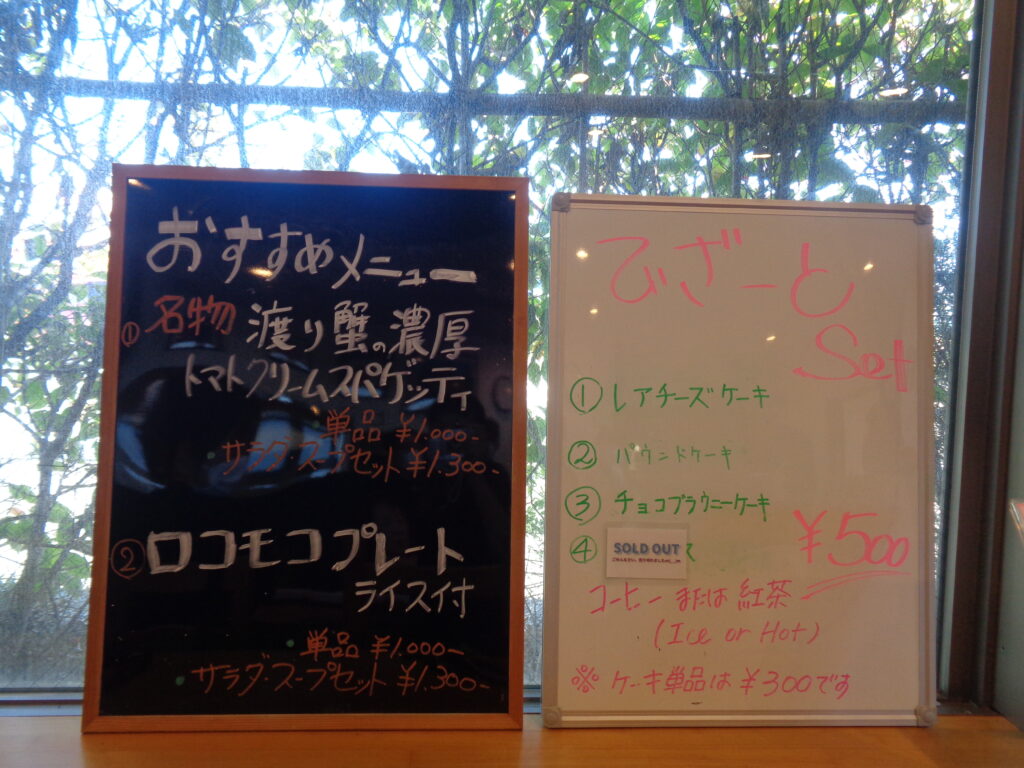 おすすめメニュー
① 名物 渡り蟹の濃厚
トマトクリームスパゲッティ
単品 ¥1.000-
サラダ・スープセット ¥1.300-
② ロコモコプレート
ライス付
単品 ¥1.000-
サラダ・スープセット ¥1.300-
でざーと
Set
① レアチーズケーキ
② パウンドケーキ
③ チョコブラウニーケーキ
④ SOLD OUT ス
¥500
コーヒー または 紅茶
(Ice or Hot)
※ ケーキ単品は ¥300です